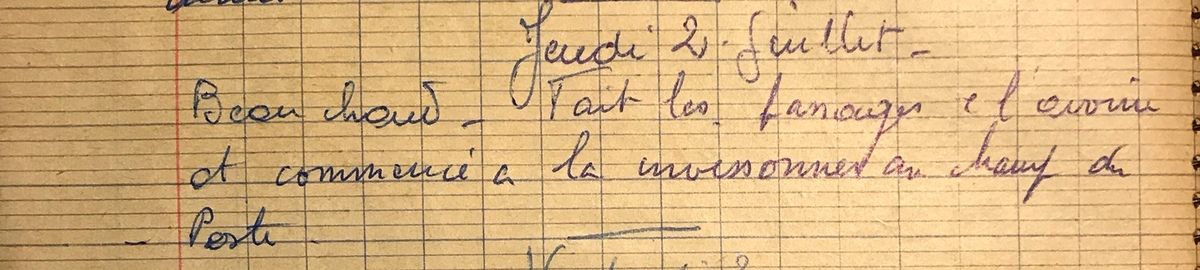 Jeudi 2. Juillet -
Beau chaud - Fait les fanages
et commencé a la moissonner au champ du
- Poste -